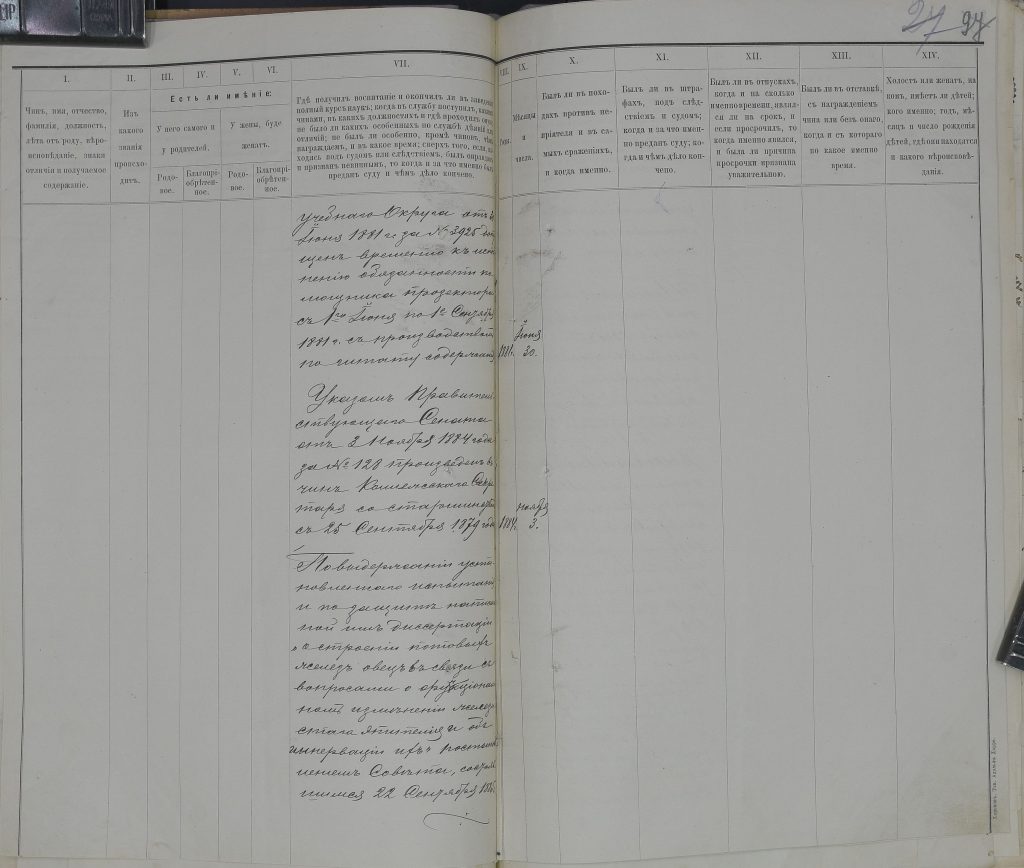 27 97
I. II. III. IV. V. VI. VII. VIII. IX. X. XI. XII. XIII. XIV.
Чинъ, имя, отчество,
фамилія, должность,
лѣта отъ роду, вѣро-
исповѣданіе, знаки
отличія и получаемое
содержаніе.
Изъ
какого
званія
происхо-
дитъ.
Есть ли имѣніе:
У него самого и
у родителей.
У жены, буде
женатъ.
Родо-
вое.
Благопрі-
обрѣтен-
ное.
Родо-
вое.
Благопрі-
обрѣтен-
ное.
Гдѣ получилъ воспитаніе и окончилъ ли въ заведеніи
полный курсъ наукъ; когда въ службу поступилъ, какими
чинами, въ какихъ должностяхъ и гдѣ проходилъ оную;
не было ли какихъ особенныхъ по службѣ дѣяній или
отличій; не былъ ли особенно, кромѣ чиновъ, чѣмъ
награждаемъ, и въ какое время; сверхъ того, если на-
ходясь подъ судомъ или слѣдствіемъ, былъ оправданъ
и признанъ невиннымъ, то когда и за что именно былъ
преданъ суду и чѣмъ дѣло кончено.
Мѣсяцы
и
числа.
Былъ ли въ похо-
дахъ противъ не-
пріятеля и въ са-
мыхъ сраженіяхъ,
и когда именно.
Былъ ли въ штра-
фахъ, подъ слѣд-
ствіемъ и судомъ;
когда и за что имен-
но преданъ суду; ко-
гда и чѣмъ дѣло кон-
чено.
Былъ ли въ отпускахъ,
когда и на сколько
именно времени, явил-
ся ли на срокъ, и
если просрочилъ, то
когда именно явился,
и была ли причина
просрочки признана
уважительною.
Былъ ли въ отставкѣ,
съ награжденіемъ
чина или безъ онаго,
когда и съ котораго
по какое именно
время
Холостъ или женатъ, на
комъ, имѣетъ ли дѣтей;
кого именно; годъ, мѣ-
сяцъ и число рожденія
дѣтей, гдѣ они находятся
и какого вѣроисповѣ-
данія.
учебнаго Округа отъ
Іюня 1881 г. за № 3925
щенъ временно къ испол
ненію обязанности по
мощника прозектора
съ 1го Іюня по 1е Сентября
1881 г. съ производствомъ
по штату содержанія
1881г. Іюня 30.
Указомъ Правитель
ствующаго Сената
отъ 3 Ноября 1884 года
за № 128 произведенъ въ
чинъ Коллежскаго Секре
таря со старшинствомъ
съ 25 Сентября 1879 года
1884г. ноября 3.
По выдержаніи уста
новленнаго испытанія
и по защитѣ написан
ной имъ диссертаціи
„о строеніи потовыхъ
железъ овецъ въ связи съ
вопросами о функціональ
номъ измѣненіи желези
стаго эпителія и объ
иннервации ихъ“ постанов
леніемъ Совѣта, состояв
шимся 22 Сентября